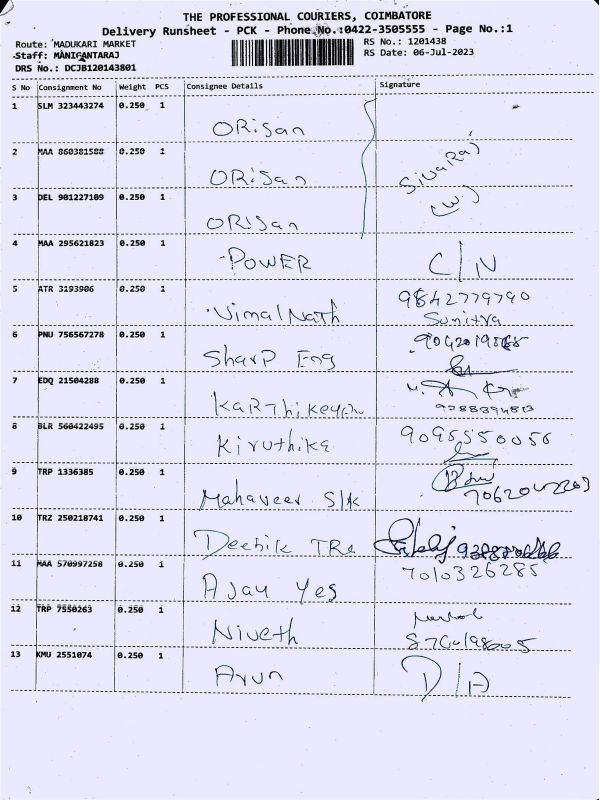 THE PROFESSIONAL COURIERS, COIMBATORE
Delivery Runsheet - PCK - Phone No.:0422-3505555 - Page No.:1
Route: MADUKARI MARKET RS No.: 1201438
Staff: MANIGANTARAJ RS Date: 06-Jul-2023
DRS No.: DCJB120143801
S No Consignment No Weight PCS Consignee Details Signature
1 SLM 323443274 0.250 1
ORisan
2 MAA 860381588 0.250 1
ORisan SivaRaj
3 DEL 901227109 0.250 1 (w)
ORISan
4 MAA 295621823 0.250 1
POWER C/N
5 ATR 3193906 0.250 1 9842779790
Vimal Nath Sumitra
6 PNU 756567278 0.250 1
Sharp Eng
7 EDQ 21504288 0.250 1
Karthikeyan
8 BLR 560422495 0.250 1 9095550056
Kiruthika
9 TRP 1336385 0.250 1
Mahaveer S/k
10 TRZ 250218741 0.250 1
Deepik TRa
11 MAA 570997258 0.250 1 7010326285
Ajay Yes
12 TRP 7550263 0.250 1
Niveth
13 KMU 2551074 0.250 1
Arun D/A